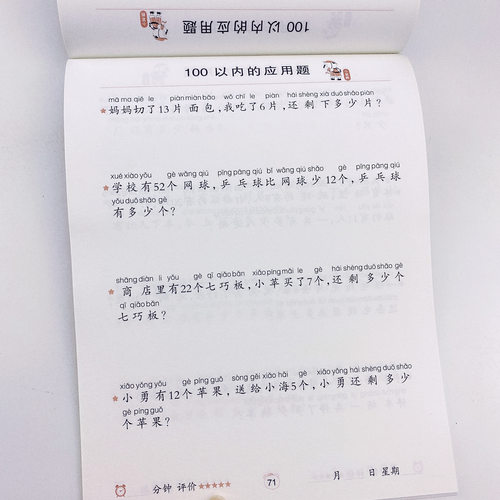 100 以内的应用题
100 以内的应用题
mā ma qiē le piàn miàn bāo wǒ chī le piàn hái shèng xià duō shǎo piàn
★妈妈切了13片面包,我吃了6片,还剩下多少片?
xué xiào yǒu gè wǎng qiú pīng pāng qiú bǐ wǎng qiú shǎo gè pīng pāng qiú
★学校有52个网球,乒乓球比网球少12个,乒乓球
yǒu duō shǎo gè
有多少个?
shāng diàn lǐ yǒu gè qī qiǎo bǎn xiǎo píng mǎi le gè hái shèng duō shǎo gè
★商店里有22个七巧板,小苹买了7个,还剩多少个
qī qiǎo bǎn
七巧板?
xiǎo yǒng yǒu gè píng guǒ sòng gěi xiǎo hǎi gè xiǎo yǒng hái shèng duō shǎo
★小勇有12个苹果,送给小海5个,小勇还剩多少
gè píng guǒ
个苹果?
分钟 评价★★★★★ 71 月 日 星期